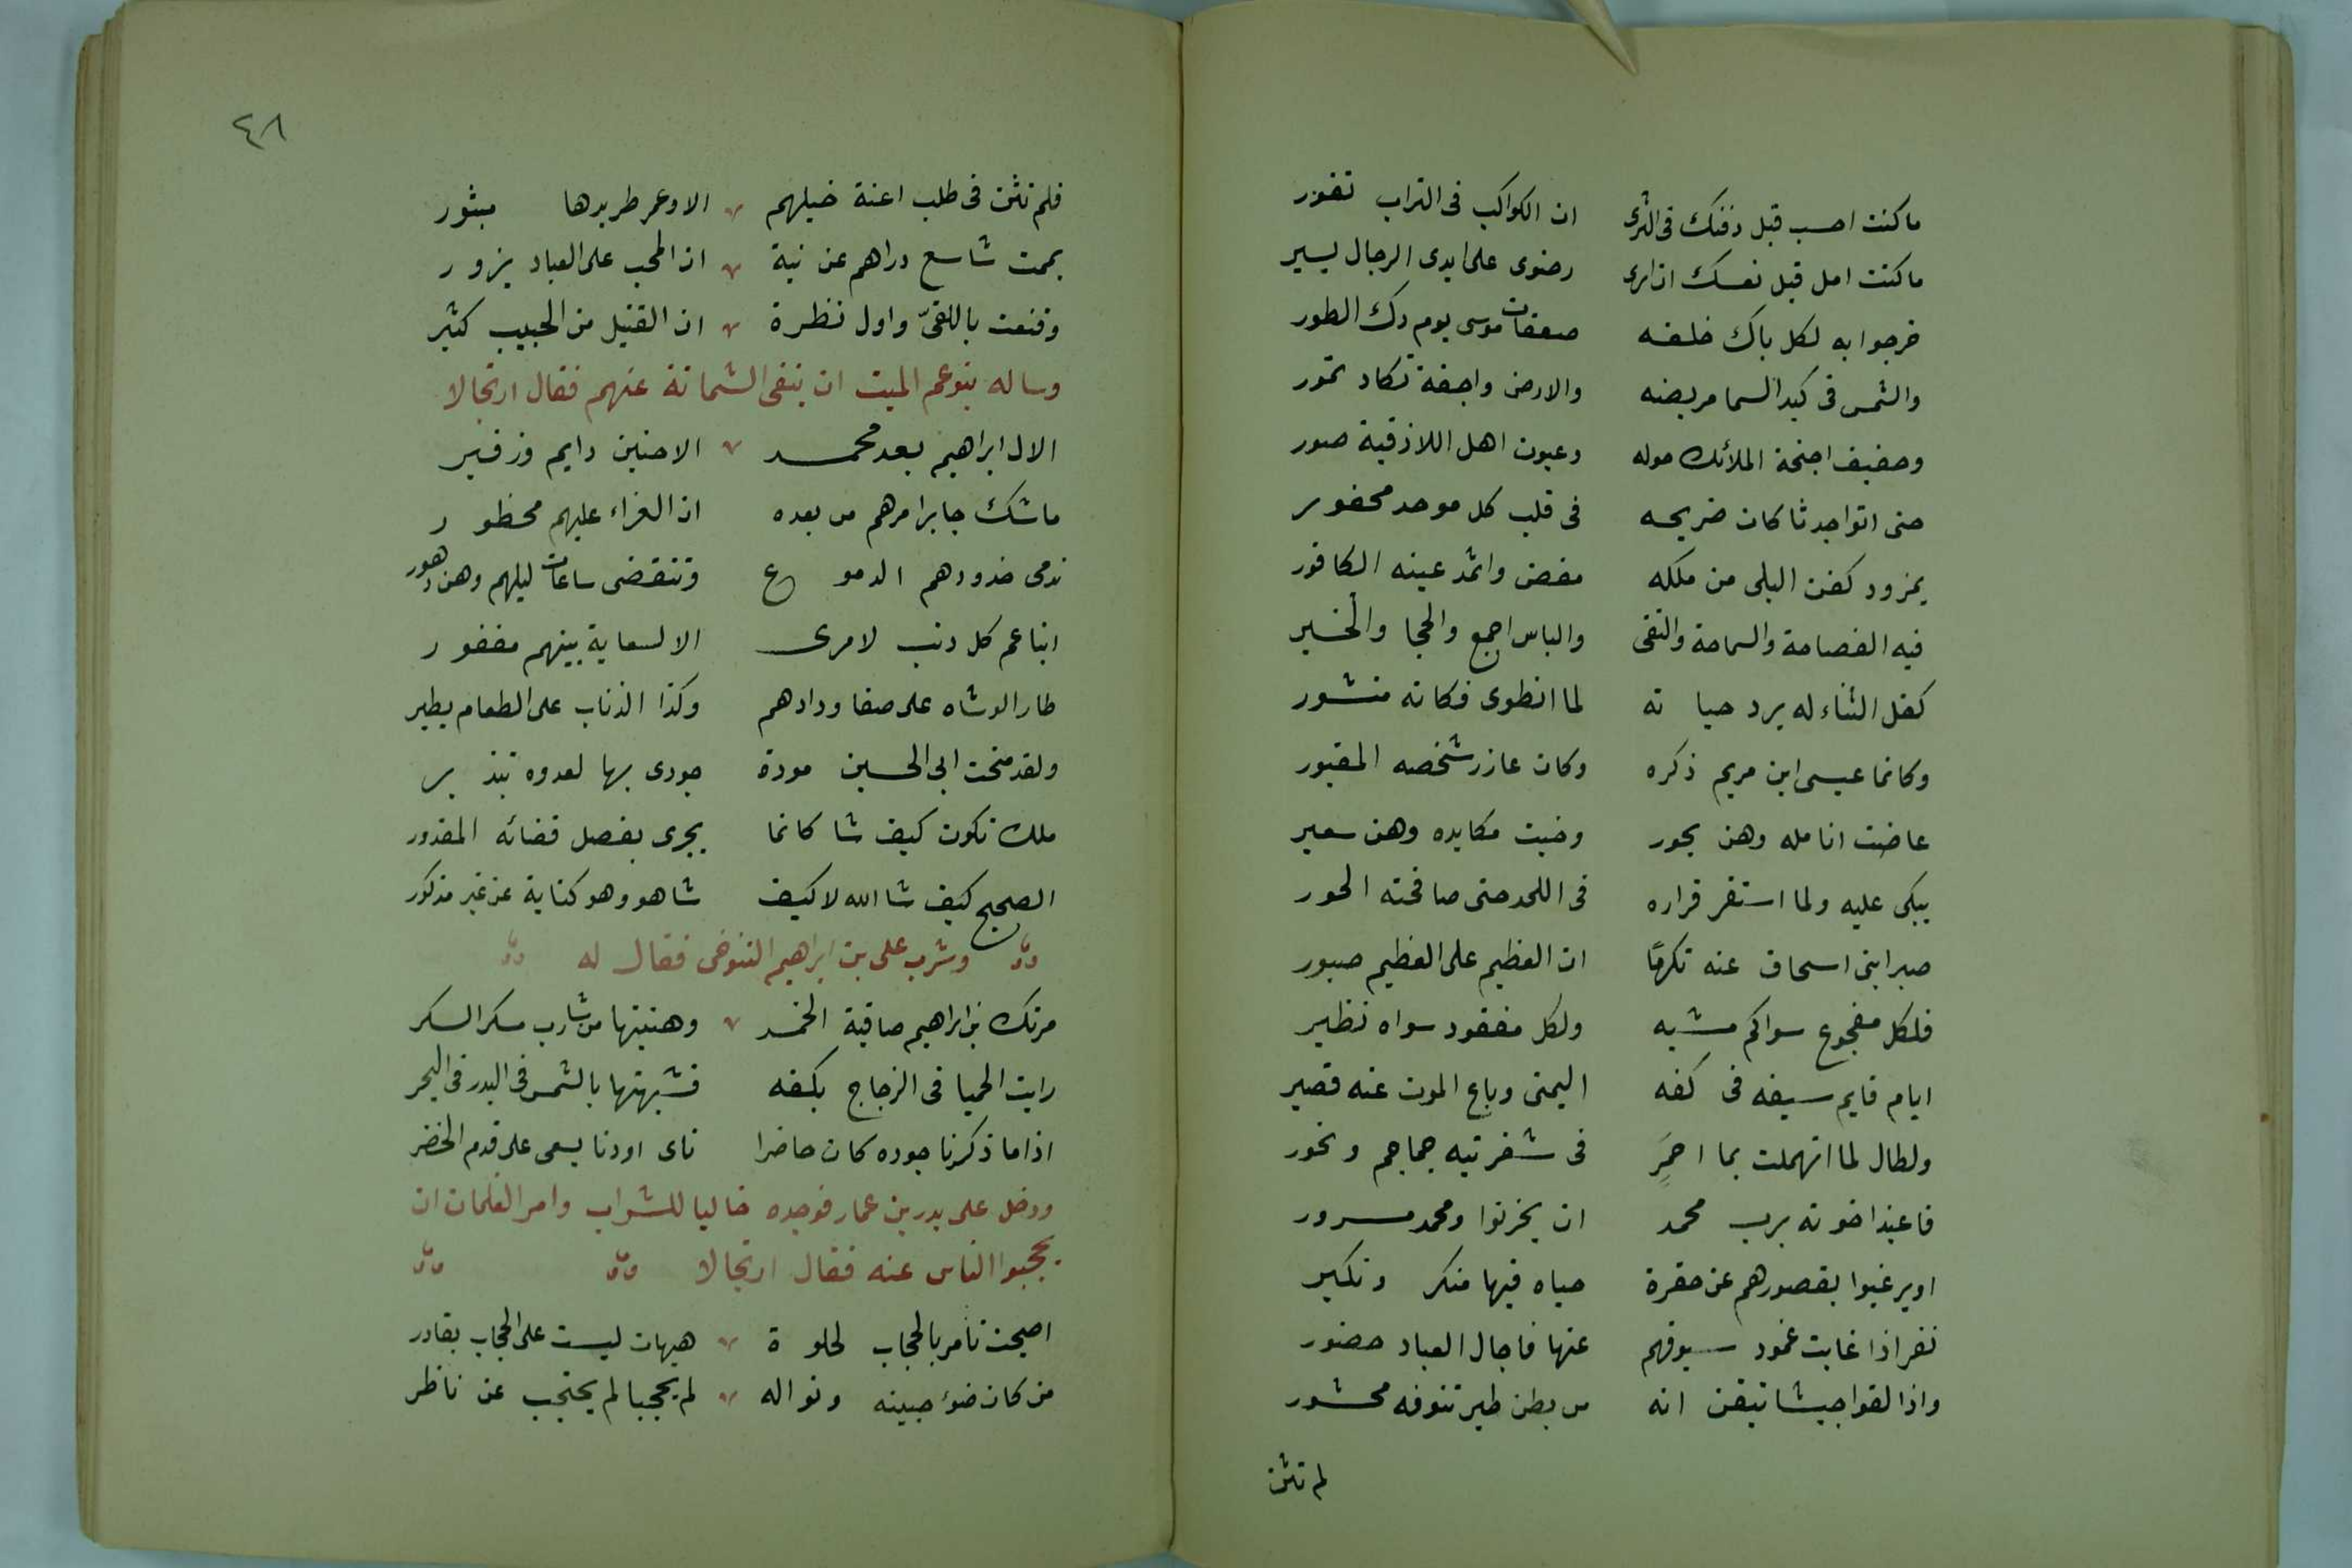 ما كنت احسب قبل دفنك فى الثرى ان الكواكب فى التراب تغور
ما كنت امل قبل نعشك ان ارى رضوى على ايدى الرجال يسير
خرجوا به لكل باك خلفه صعقات موسى يوم دك الطور
والشمس فى كبد السما مريضه والارض واجفة تكاد تمور
وحفيف اجنحة الملائك حوله وعيون اهل اللاذقية صور
حتى اتوا جدثا كان ضريحه فى قلب كل موحد محفور
بمزود كفن البلى من ملكه مغض واثمد عينه الكافور
فيه الفصاحة والسماحة والتقى والباس اجمع والحجا والخير
كفل الثناء له برد حياته لما انطوى فكانه منشور
وكانما عيسى ابن مريم ذكره وكان عازر شخصه المقبور
غاضت انامله وهن بحور وخبت مكايده وهن سعير
يبكى عليه ولما استقر قراره فى اللحد حتى صافحته الحور
صبرا بنى اسحاق عنه تكرمًا ان العظيم على العظيم صبور
فلكل مفجوع سواكم مشبه ولكل مفقود سواه نظير
ايام قايم سيفه فى كفه اليمنى وباع الموت عنه قصير
ولطال لما انهملت بما احمر فى شفرتيه جماجم ونحور
فاعيذ اخوته برب محمد ان يحزنوا ومحمد مسرور
او يرغبوا بقصورهم عن حفرة حياه فيها منكر ونكير
نفر اذا غابت غمود سيوفهم عنها فاجال العباد حضور
واذا لقوا جيشا تيقن انه من بطن طير تنوفه محشور
لم تثن
٤٨
فلم تثن فى طلب اعنة خيلهم الا وعمر طريدها مبثور
يممت شاسع دراهم عن نية ان المحب على العباد يزور
وقنعت باللقىّ واول نظرة ان القليل من الحبيب كثير
وساله بنو عم الميت ان ينفى الشماتة عنهم فقال ارتجالا
الال ابراهيم بعد محمد الا حنين دايم وزفير
ما شك جابر امرهم من بعده ان العزاء عليهم محظور
تدمى خدودهم الدموع وتنقضى ساعات ليلهم وهن دهور
ابنا عم كل دنب لامرى الا لسعاية بينهم مغفور
طار الوشاه على صفا ودادهم وكذا الذناب على الطعام يطير
ولقد منحت ابى الحسين مودة جودى بها لعدوه تبذير
ملك تكون كيف شا كانما يجرى بفصل قضائه المقدور
الصحيح كيف شا الله لا كيف شا هو وهو كناية عن غير مذكور
وشرب على بن ابراهيم التنوخى فقال له
مرتك بن ابراهيم صافية الخمر وهنيتها من شارب مسكر السكر
رايت الحميا فى الزجاج بكفه فشبهتها بالشمس فى البدر فى البحر
اذا ما ذكرنا جوده كان حاضرا ناى او دنا يسعى على قدم الخضر
ودخل على بدر بن عمار فوجده خاليا للشراب وامر الغلمان ان
يحجبوا الناس عنه فقال ارتجالا
اصبحت تامر بالحجاب لخلوة هيهات ليست على الحجاب بقادر
من كان ضوء جبينه ونواله لم يحجبا لم يحتجب عن ناظر